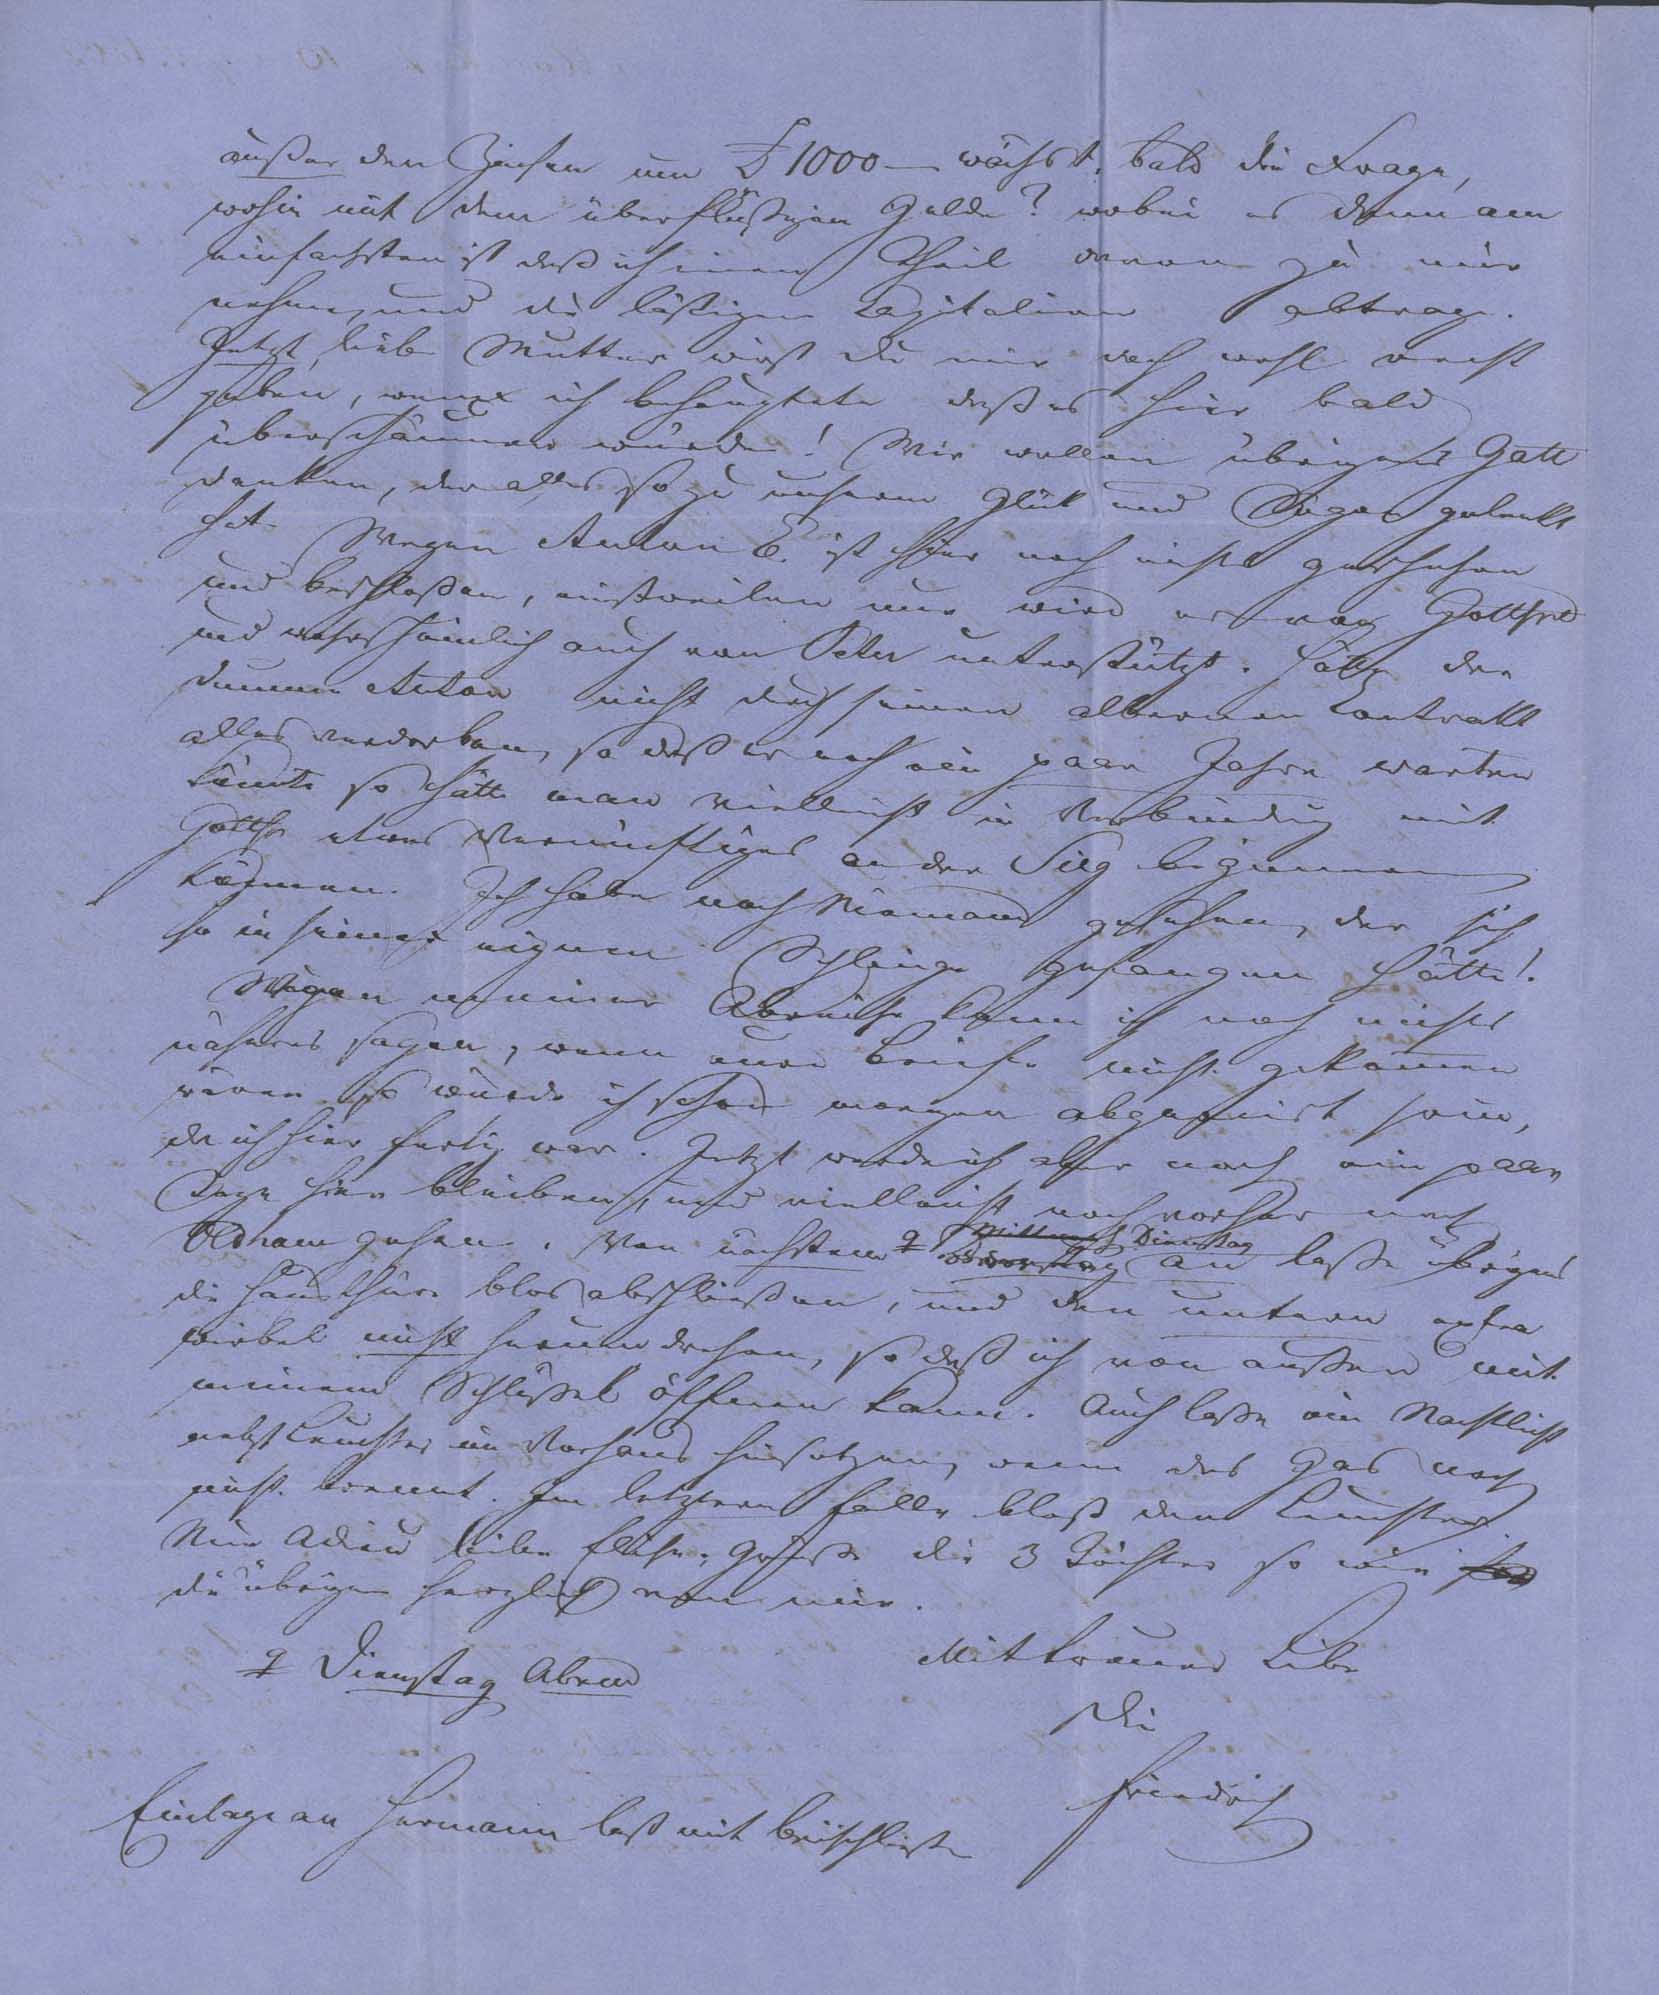 außer den Zinsen um £ 1000 – wächst, bald die Frage,
wohin mit dem überflüßigen Gelde? wobei es denn am
einfachsten ist daß ich einen Theil davon zu mir
nehme, und die läßtigen Capitalien abtrage.
Jetzt liebe Mutter wirst Du mir doch wohl recht
geben, wenn ich behauptete daß es hier bald
überschäumen würde! Wir wollen übrigens Gott
danken, der alles so zu unserm Glück und Segen gelenkt
hat. Wegen Anton E. ist hier noch nichts geschehen
und beschloßen, einstweilen nur wird er von Gottfrd
und wahrscheinlich auch von Peter unterstützt. Hätte der
dumme Anton nicht durch seinen albernen Contrakt
alles verdorben, so daß er noch ein paar Jahre warten
könnte so hätte man vielleicht in Verbindung mit
Gottfr etwas Vernünftiges an der Sieg beginnen
können. Ich habe noch Niemand gesehen, der sich
so in seiner eignen Schlinge gefangen hätte!
Wegen meiner Abreise kann ich noch nichts
näheres sagen, wenn eure Briefe nicht gekommen
wären so würde ich schon morgen abgereist sein,
da ich hier fertig war. Jetzt werde ich aber noch ein paar
Tage hier bleiben, und vielleicht noch vorher nach
Oldham gehen. Von nächstem Mittwoch Dienstag
Donnerstag an laße übrigens
die Hausthüre blos abschließen, und den untern extra
wirbel nicht herumdrehen, so daß ich von außen mit
meinem Schlüßel öffnen kann. Auch laße ein Nachtlicht
nebst Leuchter im Vorhaus hinsetzen, wenn das Gas noch
nicht brennt. Im letztern Falle bloß den Leuchter.
Nun Adieu liebe Elise, Grüße die 3 Töchter so wie
die übrigen herzlich von mir.
Mit treuer Liebe
Dienstag Abend
Dein
Friedrich
Einlage an Hermann laß mit beischließen